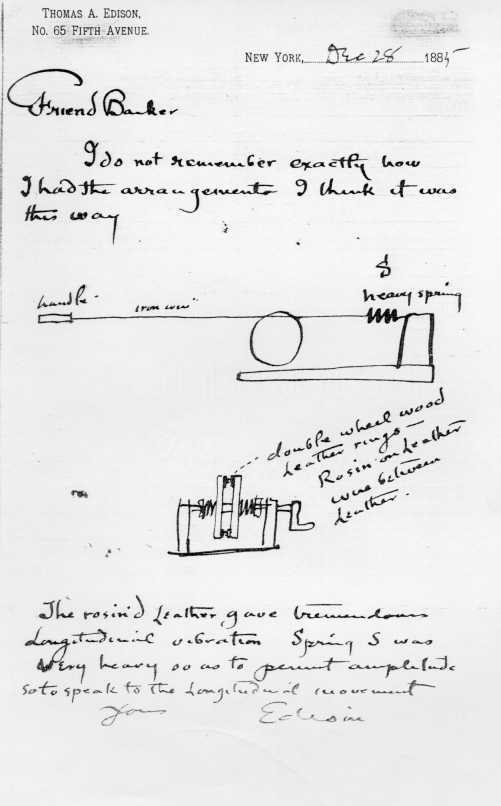 THOMAS A. EDISON,
NO. 65 FIFTH AVENUE.
NEW YORK, Dec 28 1885
Friend Barker
I do not remember exactly how
I had the arrangements I think it was
this way
S
handle
iron wire
heavy spring
double wheel wood
Leather rings —
Rosin on Leather
wire between
Leather.
The rosin'd Leather gave tremendous
Longitudinal vibration Spring S was
very heavy so as to permit amplitude
so to speak to the Longitudinal movement
Yours Edison